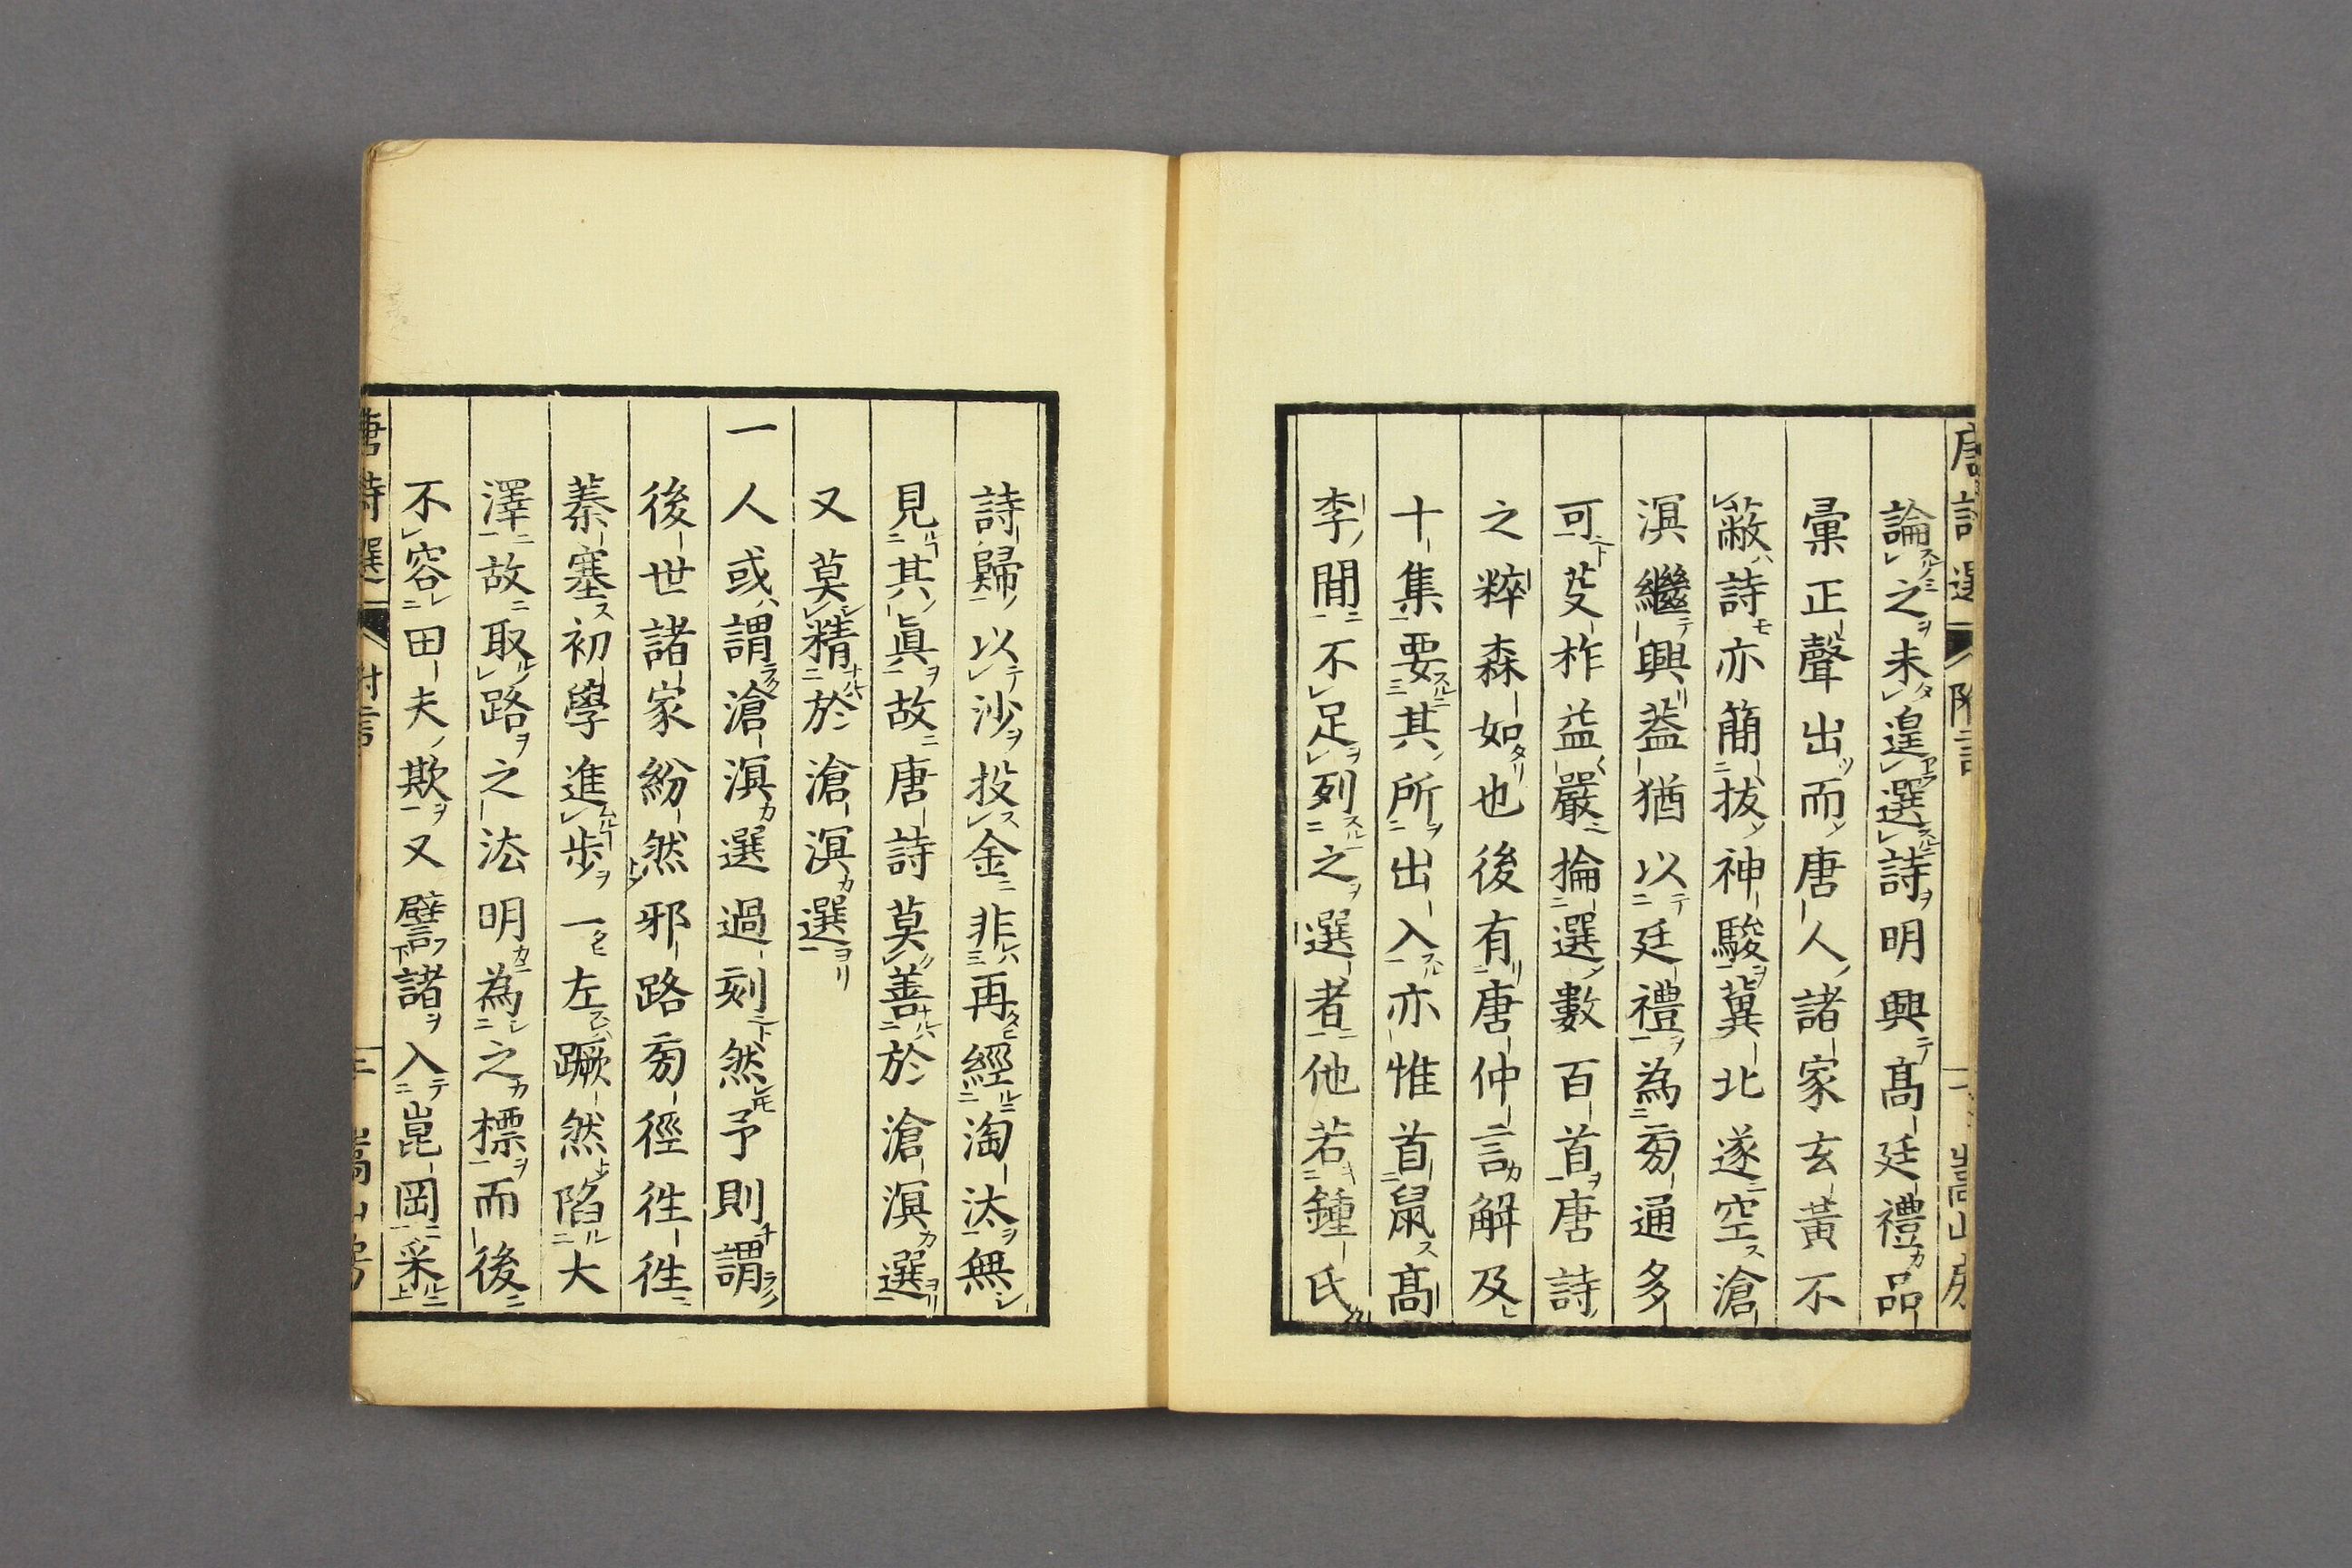 唐詩選 附言 二 嵩山房
論之未遑選詩明興高廷禮品
彙正聲出而唐人諸家玄黃不
蔽詩亦簡拔神駿冀北遂空滄
溟繼興蓋猶以廷禮為芴通多
可芟柞益嚴掄選數百首唐詩
之粹森如也後有唐仲言解及
十集要其所出入亦惟首鼠高
李間不足列之選者他若鍾氏
詩歸以沙投金非再經淘汰無
見其眞故唐詩莫善於滄溟選
又莫精於滄溟選
一人或謂滄溟選過刻然予則謂
後世諸家紛然邪路芴徑徃徃
蓁塞初學進步一左蹶然陷大
澤故取路之法明為之標而後
不容田夫欺又譬諸入崑岡采
唐詩選 附言 三 嵩山房